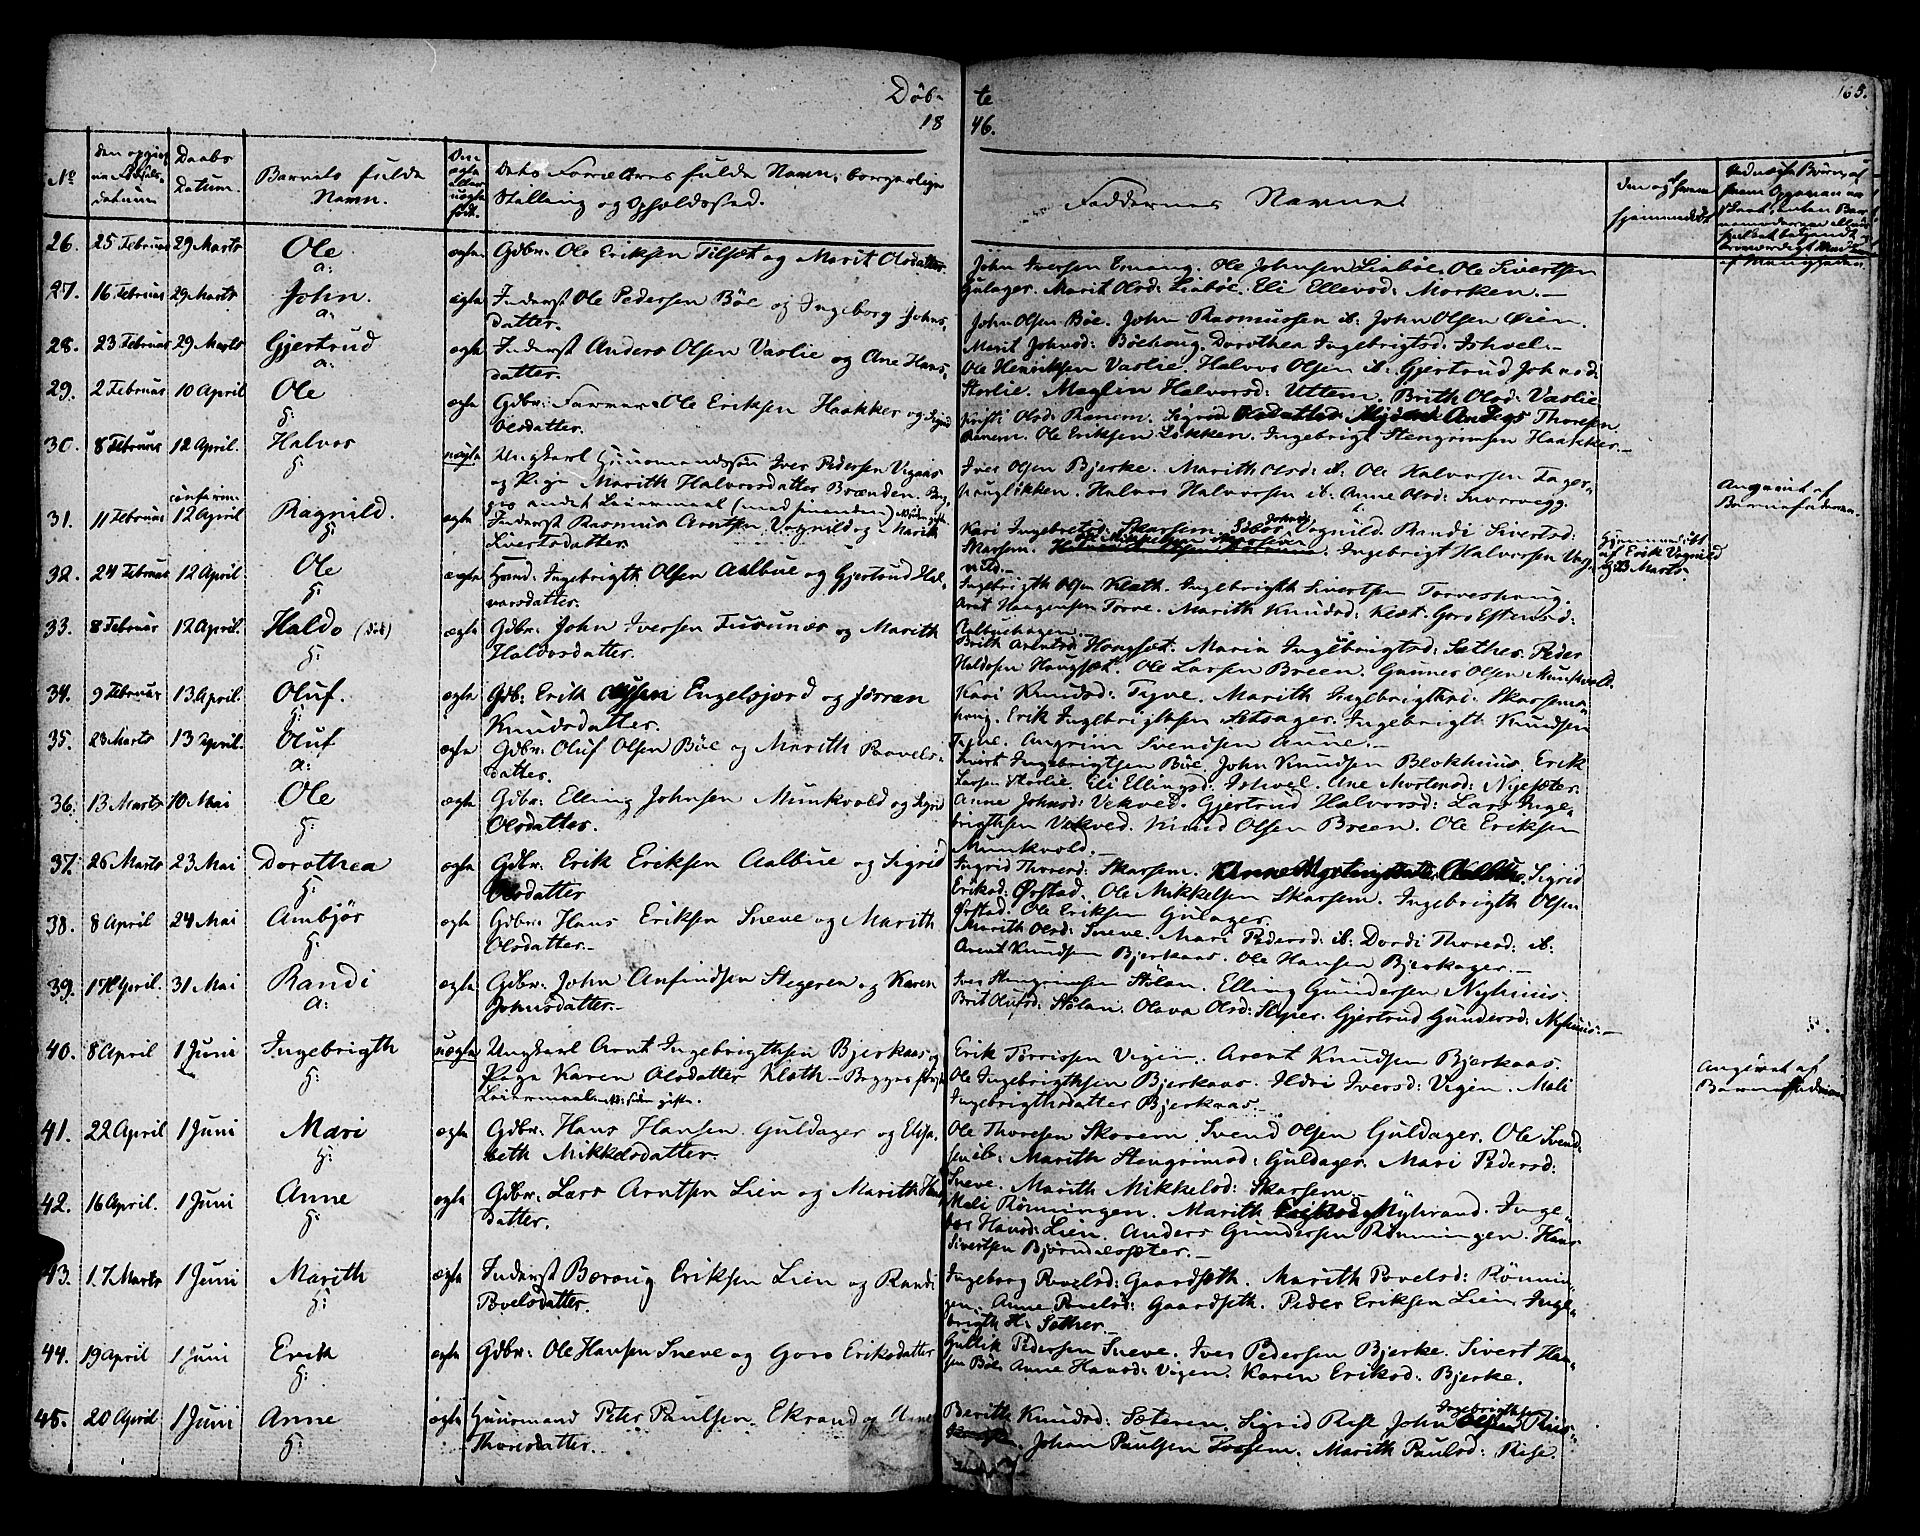 Døb-
te
165.
18
46.
No
Daabs
Datum.
Barnets fulde
Navn.
Dets Forældres fulde Navn, borgerlige
Stilling og Opholdssted.
Faddernes Navne
26. 25 Februar 29 Marts Ole ægte Gdbr: Ole Eriksen Tilset og Marit Olsdatter
a:
John Iversen Emang. Ole Johnsen Liabøe. Ole Sivertsen
Gulager. Marit Olsd: Liabøe. Eli Ellevsd: Morken.—
27. 16 Februar 29 Marts John. ægte Inderst Ole Pedersen Böe og Ingeborg Johns-
a:
datter.
John Olsen Böe. John Rasmussen ib: John Olsen Öien.
Marit Johnsd: Böehaug. Dorothea Ingebrigtsd: Ishvel.—
28. 23 Februar 29 Marts Gjertrud ægte Inderst Anders Olsen Vaslie og Ane Hans-
a:
datter.
Ole Henriksen Vaslie. Halvor Olsen ib: Gjertrud Johnsd:
Storlie. Maglin Halvorsd: Uttem. Brith Olsd: Vaslie
29. 2 Februar 10 April Ole ægte Gdbr: Ole Eriksen Haakker og Sigrid
h:
Olsdatter.
Kristi Olsd: Ranem. Sigrid Thoresen
Ranem. Ole Eriksen Løkken. Ingebrigt Stengrimsen Haakker.—
30. 8 Februar 12 April. Halvor uægte Ungkarl Huusmandssøn Iver Pedersen Vigen
h:
og Pige Marith Halvorsdatter Brænden.
Iver Olsen Bjerke. Marith Olsd: ib: Ole Halvorsen Fager-
haugløkken. Halvor Halvorsen ib: Anne Olsd: Hvorvegg.
Angivet af
Barnefaderen.
31. 11 Februar 12 April Ragnild. ægte Inderst Rasmus Arntsen Vognild og Marit
Sivertsdatter.
Kari Ingebretsd: Skarsem. Vognild. Randi Sivertsd:
Skarsem. Ingebrigt Halvorsen Vog-
nild.—
Hjemmedøbt
af Erik Vognild
32. 24 Februar 12 April Ole ægte Huusmd: Ingebrigth Olsen Aalbue og Gjertrud Hal-
h:
vorsdatter.
Ingebrigth Olsen Klæth. Ingebrigth Sivertsen Torveshaug.
Arnt Haagensen Torve. Marith Knudsd: Klæt. Goro Estensd:
Aalbuehagen.—
33. 8 Februar 12 April. Haldo (død) ægte Gdbr: John Iversen Furunæs og Marith
h:
Haldosdatter.
Brith Arentsd: Haugset. Maria Ingebrigtsd: Sæther. Peder
Haldosen Haugset. Ole Larsen Breen. Gunner Olsen Munkvold.
34. 9 Februar 13 April. Oluf. ægte Gdb: Erik Olssen Engelsjord og Jorran
h:
Knudsdatter.
Kari Knudsd: Tyve. Marith Ingebrigtsd: Skarsems-
haug. Erik Ingebrigtsen Setsager. Ingebrigt Knudsen
Tyve. Angrim Svendsen Aune.—
35. 23 Marts 13 April. Oluf ægte Gdbr: Oluf Olsen Böe og Marith Povels-
a:
datter.
Sivert Ingebrigtsen Böe. John Knudsen Blokhuus. Erik
Larsen Storlie. Eli Ellingsd: Ishvel. Ane Mortensd: Nysæter.
36. 13 Marts 10 Mai Ole ægte Gdbr: Elling Johnsen Munkvold og Sigrid
h:
Olsdatter.
Anne Johnsd: Vekved. Gjertrud Halvorsd: Lars Inge-
brigthsen Vekved. Knud Olsen Breen. Ole Eriksen
Munkvold.—
37. 26 Marts 23 Mai Dorothea ægte Gdbr: Erik Eriksen Aalbue og Sigrid
h:
Olsdatter
Ingrid Thoresd: Skarsem. Sigrid
Eriksd: Ørstad. Ole Mikkelsen Skarsem. Ingebrigth Olsen
Ørstad. Ole Eriksen Gulager.
38. 8 April 24 Mai Ambjör ægte Gdbr: Hans Eriksen Sneve og Marith
h:
Olsdatter.—
Marith Olsd: Sneve. Mari Pedersd: ib: Dordi Thoresd: ib:
Arent Knudsen Bjerkaas. Ole Hansen Bjerkager.—
39. 17 April. 31 Mai Randi ægte Gdbr: John Anfindsen Stegeren og Karen
a:
Johnsdatter.—
Iver Stengrimsen Stölan. Elling Gundersen Nyhuus.
Brit Olufsd: Stölan. Olava Olsd: Sliper. Gjertrud Gundersd: Nyhuus:—
40. 8 April 1 Juni Ingebrigth uægte Ungkarl Arnt Ingebrigthsen Bjerkaas og
h:
Pige Karen Olsdatter Klæth — Begges første
Leiermaal. NB: siden gifte.
Erik Torrissen Vigen. Arent Knudsen Bjerkaas.
Ole Ingebrigthsen Bjerkaas. Ildri Iversd: Vigen. Mali
Ingebrigthsdatter Bjerkaas.—
Angivet af
Barnefaderen
41. 22 April 1 Juni Mari ægte Gdbr: Hans Hansen Guldager og Elisa-
h:
beth Mikkelsdatter.
Ole Thoresen Skorem. Svend Olsen Guldager. Ole Svend-
sen ib: Marith Stengrimsd: Guldager. Mari Pedersd:
Sneve. Marith Mikkelsd: Skarsem.—
42. 16 April. 1 Juni Anne ægte Gdbr: Lars Arntsen Lien og Marith Hans-
h:
datter.
Mali Rønningen. Marith Eriksd: Myhrand. Inge-
bor Hansd: Lien. Anders Gundersen Rønningen. Hans
Sivertsen Bjørndalssæter.—
43. 17 Marts 1 Juni Marith ægte Inderst Eriksen Lien og Randi
h:
Povelsdatter.
Ingeborg Povelsd: Gaardseth. Marith Povelsd: Rønnin-
gen. Anne Povelsd: Gaardseth. Peder Eriksen Lien. Inge-
brigth H: Sæther.—
44. 19 April 1 Juni Erik ægte Gdbr: Ole Hansen Sneve og Goro Eriksdatter
h:
Gullik Pedersen Sneve. Iver Pedersen Bjerke. Sivert Han-
sen Böe. Anne Hansd: Vigen. Karen Eriksd: Bjerke.
45. 20 April 1 Juni Anne ægte Huusmand Peter Paulsen Ekrand og Anne
h:
Thoresdatter.
Berith Knudsd: Sæteren. Sigrid Rise. John Ingebrigthsen Riis-
Johan Paulsen Fossem. Marith Paulsd: Rise.